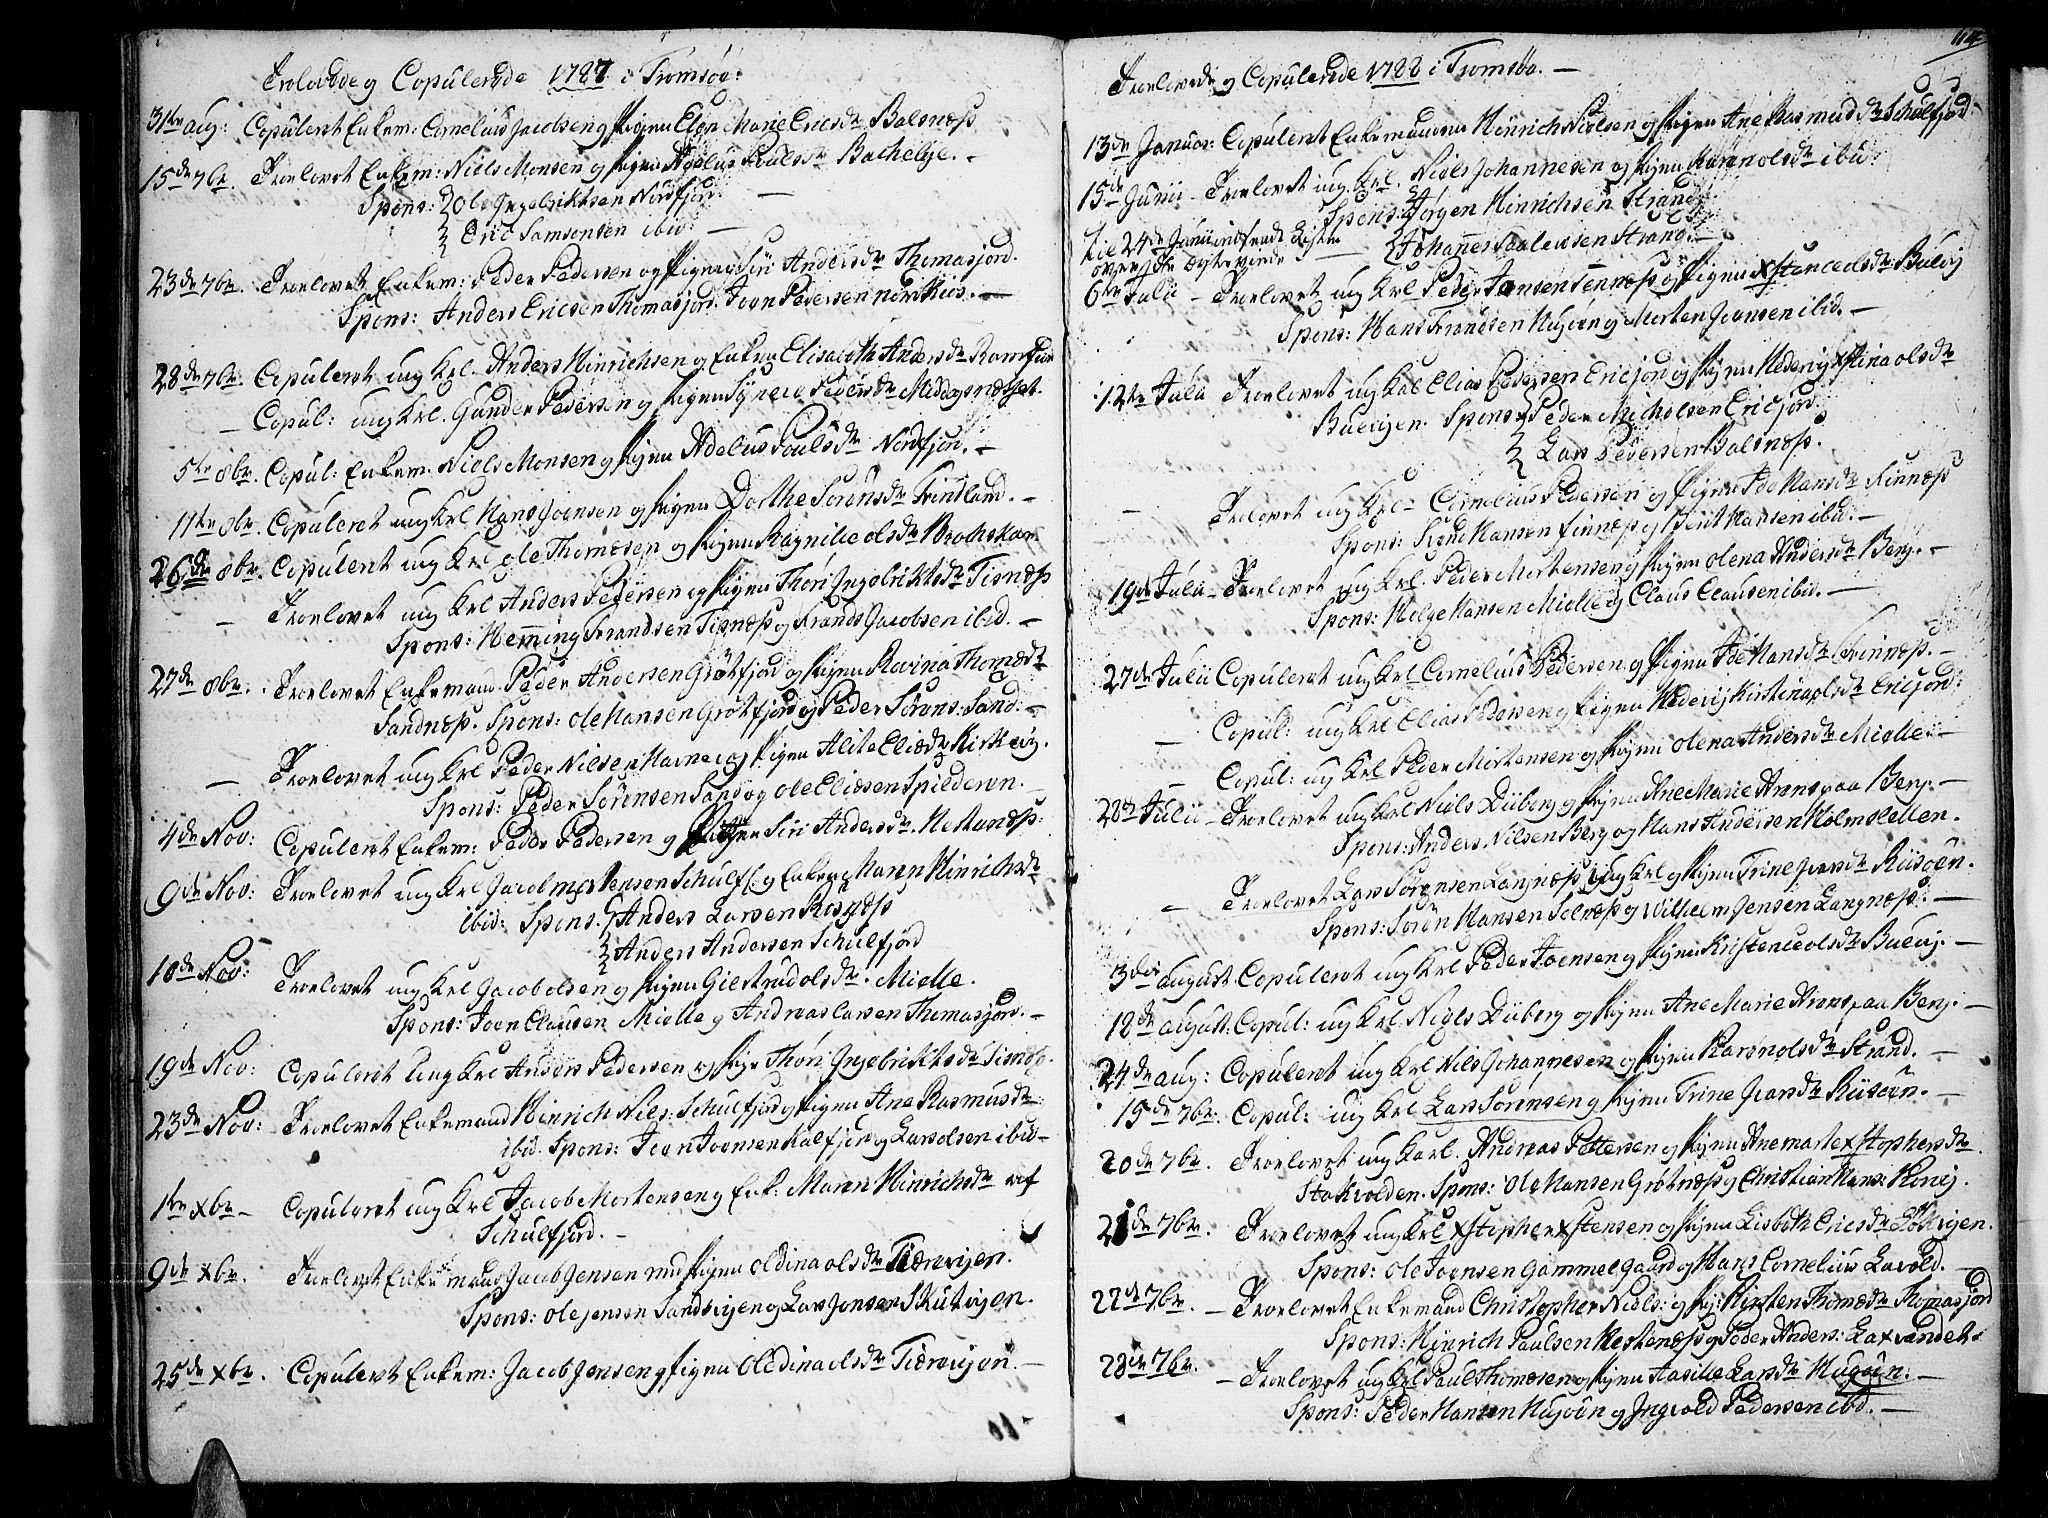 Trolovede og Copulerede 1787 i Tromsøe:
31te aug: Copuleret Enkem: Cornelius Jacobsen og Pigen Elen Marie Ericsdr Balsnæss
15de 7br. Troelovet Enkem: Niels Monsen og Pigen Adelus Poulsdr Bachebye. -
Spons: Ole Ingebriktsen Nordfjord
Eric Samsonsen ibid: -
23de 7br. Troelovet Enkem: Peder Pedersen og Pigen Siri Andersdr Thomasjord.
Spons: Anders Ericsen Thomasjord. Joen Pedersen
28de 7br. Copuleret ung Krl. Anders Hinrichsen og Enken Elisabeth Andersdr
- Copul: ung Krl. Gunder Pedersen og Pigen Synere Pedersdr Middagsnæsset.
5te 8br. Copul: Enkem. Niels Monsen og Pigen Adelus Poulsdr Nordfjor. -
11te 8br. Copuleret ung Krl Hans Joensen og Pigen Dorthe Sørensdr Trindland. -
26de 8br. Copuleret ung Krl Ole Thomesen og Pigen Ragnilie olsdr
- Troelovet ung Krl Anders Pedersen og Pigen Thori Ingebriktsdr Tisnæss
Spons: Hemming Frandsen Tisnæss og Frands Jacobsen ibid. -
27de 8br. Troelovet Enkemand Peder Andersen Grøtfjord og Pigen Karina Thomædr
Sandnæss. Spons: Ole Hansen Grøtfjord og Peder Sørens: Sand: -
- Troelovet ung Krl Peder Nilsen Havnes og Pigen Alite Eliædr Kirkevig.
Spons: Peder Sørensen Sand og Ole Eliesen Spilderen. -
4de Nov: Copuleret Enkem: Peder Pedersen og Pigen Siri Andersdr.
9de Nov: Troelovet ung Krl Jacob mortensen Schulf: og Enken Maren Hinrichsdr
ibid: Spons: Anders Larsen
Anders Andersen Schulfjord
10de Nov: Troelovet ung Krl Jacob olsen og Pigen Giertrud olsdr. Mielle.
Spons: Joen Clausen Mielle og Andreas Larsen Thomasjord. -
19de Nov: Copuleret Ung Krl Anders Pedersen og Pige Thori Ingebriktsdr Tisnæss.
23de Nov: Troelovet Enkemand Hinrich Niels: Schulfjord og Pigen Ane Rasmusdr:
ibid. Spons: Joen Joensen Kalfjord og Lars olsen ibid -
1te xbr - Copuleret ung Krl Jacob Mortensen og Enk: Maren Hinrichsdr af
Schulfjord. -
9de xbr. Troelovet Enkemand Jacob Jensen med Pigen Oldina olsdr Tiærevigen.
Spons: Ole jensen Sandvigen og Lars Jensen Skutvigen.
25de xbr. Copuleret Enkem: Jacob Jensen og Pigen Oldina olsdr Tiærevigen. -
114
Troelovede og Copulerede 1788 i Tromsøe. -
13de Januar: Copuleret Enkemanden Hinrich Nielsen og Pigen Ane Rasmusdr Schulfjord.
15de Junii - Troelovet ung Krl. Niels Johannesen og Pigen Karen olsdr ibid:
Spons: Jørgen Hinrichsen Strand
til 24de Junii indsendt Listen
over de Egteviede - Johannes Paulusen Strand. -
6te Julii - Troelovet ung Krl Peder Joensen Tennæss og Pigen xstence olsdr: Buevig
Spons: Hans Frandsen Hugøen og Morten Joensen ibid. -
12te Julii Troelovet ung Krl Elias Pedersen Ericfjord og Pigen Hedevig xstina olsdr
Buevigen. Spons: Peder Michelsen Ericfjord
Lars Pedersen Balsnæss.
- Troelovet ung Krl - Cornelius Pedersen og Pigen Ide Hansdr Finnæss
Spons: Hansen Finnæss og Berit Hansen ibid. -
19de Julii - Troelovet ung Krl. Peder Mortensen og Pigen Olena Andersdr Berg. -
Spons: Helge Hansen Mielle og Claus Clausen ibid. -
27de Julii Copuleret ung Krl Cornelius Pedersen og Pigen Ide Hansdr Finnæss. -
- Copul: ung Krl Elias Pedersen og Pigen Hedevig Kirstina olsdr Ericfjord:
- Copul: ung Krl Peder Mortensen og Pigen Olena Andersdr Mielle: -
28de Julii - Troelovet ung Krl Niels Duberg og Pigen Ane Marie Arens paa Berg. -
Spons: Anders Nilsen Berg og Hans Andersen Holmesletten.
- Troelovet Lars Sørensen Langnæss ung Krl og Pigen Trine Ivarsdr Riisøen.
Spons: Søren Hansen Selnæss og Willhelm Jensen Langnæss. -
3die august Copuleret ung Krl Peder Joensen og Pigen Kristence olsdr Buevig. -
18de august: Copul: ung Krl. Niels Duberg og Pigen Ane Marie Arens paa Berg. -
24de aug: Copuleret ung Krl Nils Johannesen og Pigen Karen olsdr Strand. -
15de 7br. Copul: ung Krl Lars Sørensen og Pigen Trine Ivarsdr Riisøen. -
20de 7br. Troelovet ung Karl. Andreas Pettersen og Pigen Anemarte xstophersdr
Stakvolden. Spons: Ole Hansen Grøtnæss og Christian Hans: Konig.
21de 7br. Troelovet ung Krl xstopher xstensen og Pigen Lisbeth Ericsdr Løkvigen.
Spons: Ole Joensen Gammelgaard og Hans Cornelius Lavold. -
22de 7br. - Troelovet Enkemand Christopher Niels: og Pig: Kirsten Thomædr Thomasjord
Spons: Hinrich Paulsen Hestenæss og Peder Anders: Laxvandet.
28de 7br. - Troelovet ung Krl Paul Thomesen og Pigen Aasille Larsdr Hugøen. -
Spons: Peder Hansen Hugøen og Ingvold Pedersen ibd. -